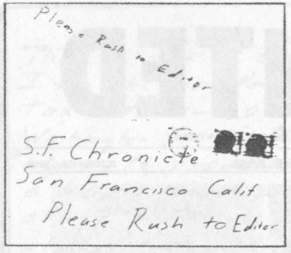 Please Rush to Editor
S.F. Chronicle
San Francisco Calif
Please Rush to Editor